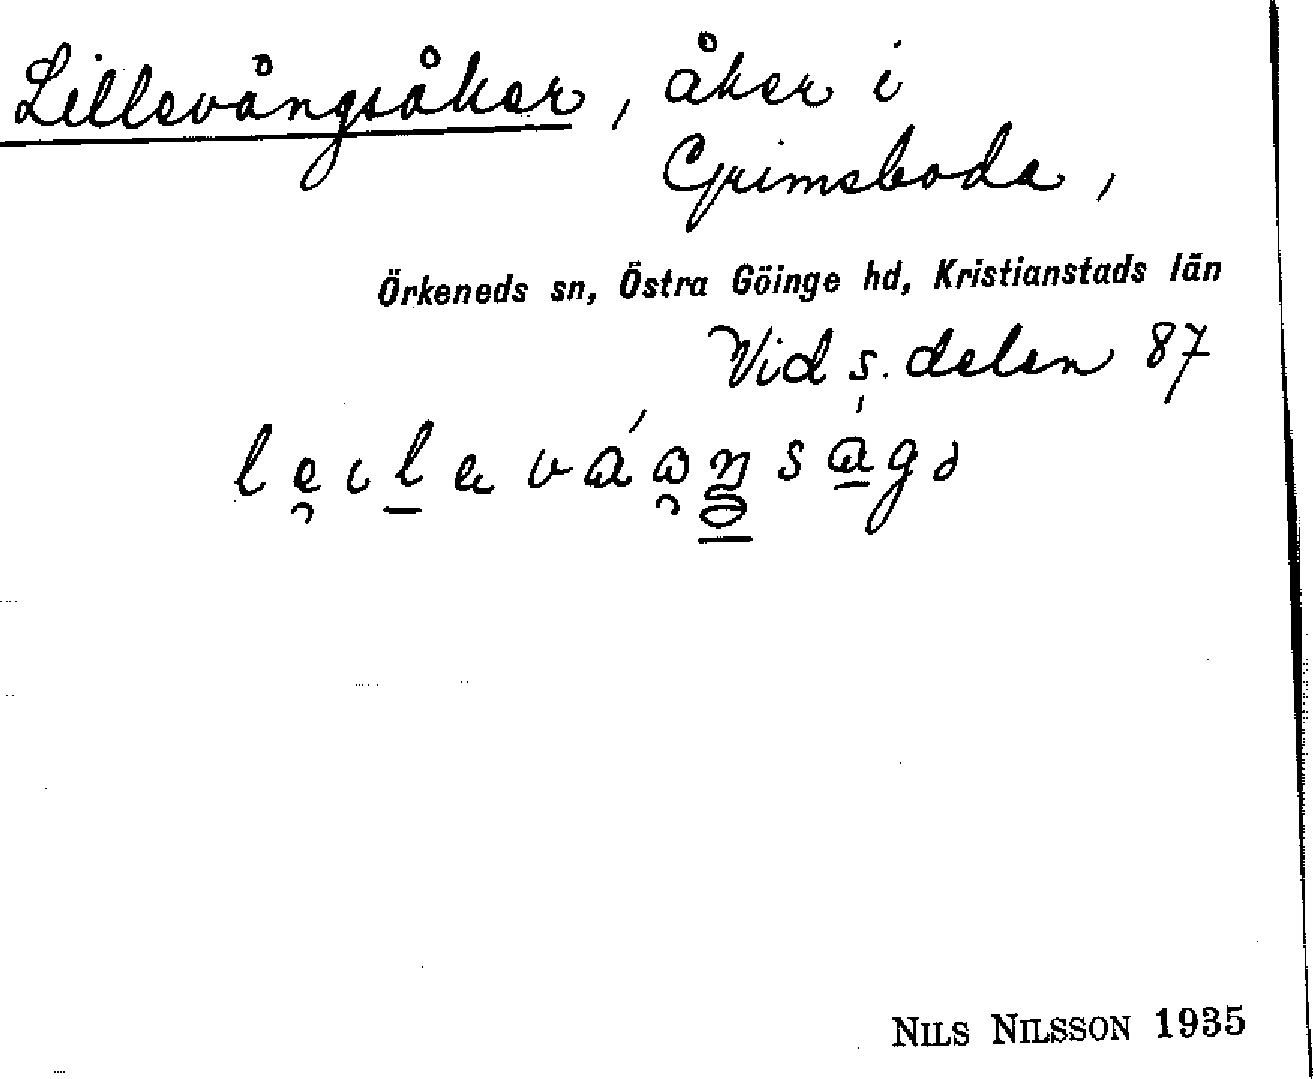 Lillevångsåker, åker i
Grimsboda,
Örkeneds sn, Östra Göinge hd, Kristianstads län
Vid s. delen 87
NILS NILSSON 1935